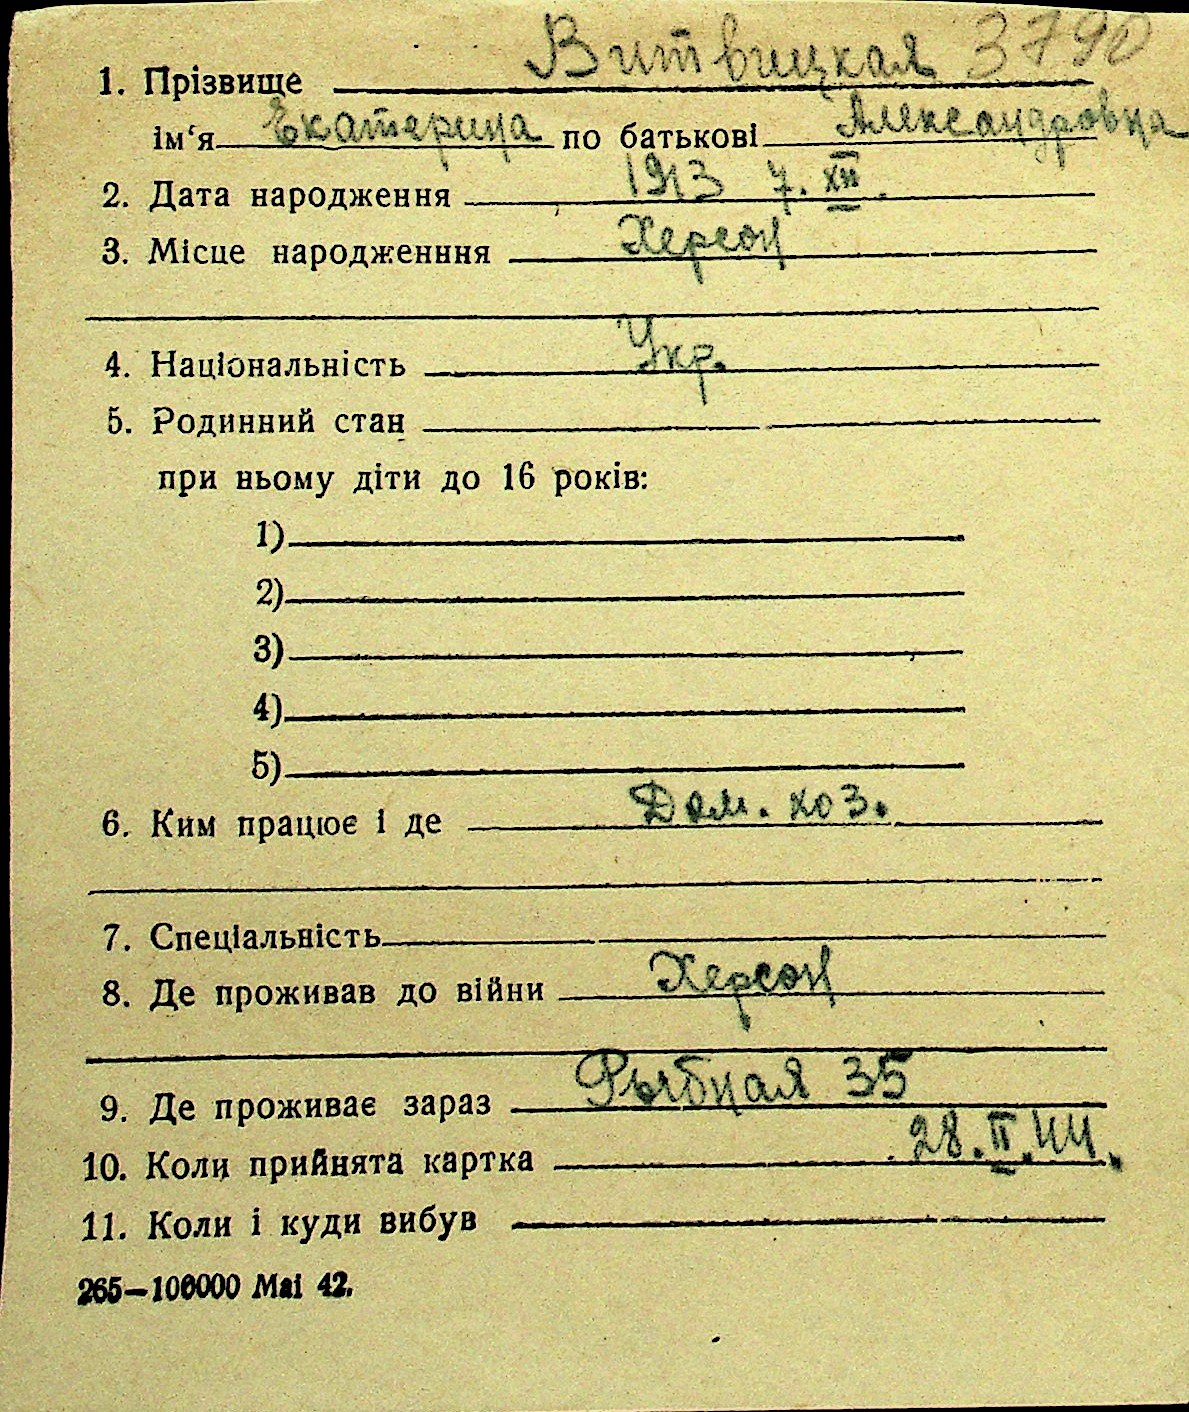 1. Прізвище Витвицкая 3790
ім‘я Екатерина по батькові Александровна
2. Дата народження 1913 7. XII.
3. Місце народженння Херсон
4. Національність Укр.
5. Родинний стан
при ньому діти до 16 років:
1)
2)
3)
4)
5)
6. Ким працює і де Дом. хоз.
7. Спеціальність
8. Де проживав до війни Херсон
9. Де проживає зараз Рыбная 35
10. Коли прийнята картка 28.II.44.
11. Коли і куди вибув
265—100000 Маі 42.